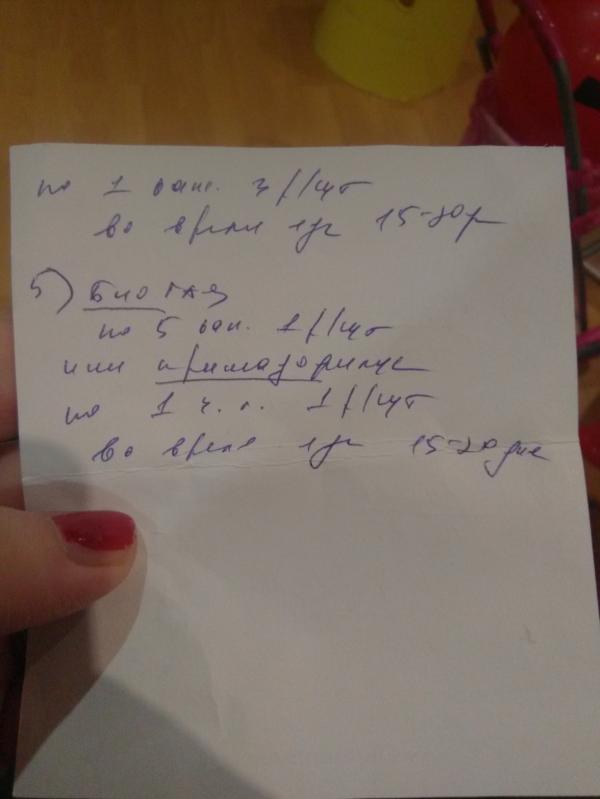 по 1 кап. 4 р/сут
во время еды 15-20 д
5) Биогая
по 5 кап. 1 р/сут
или примадофилус
по 1 ч. л. 1 р/сут
во время еды 15-20 дне